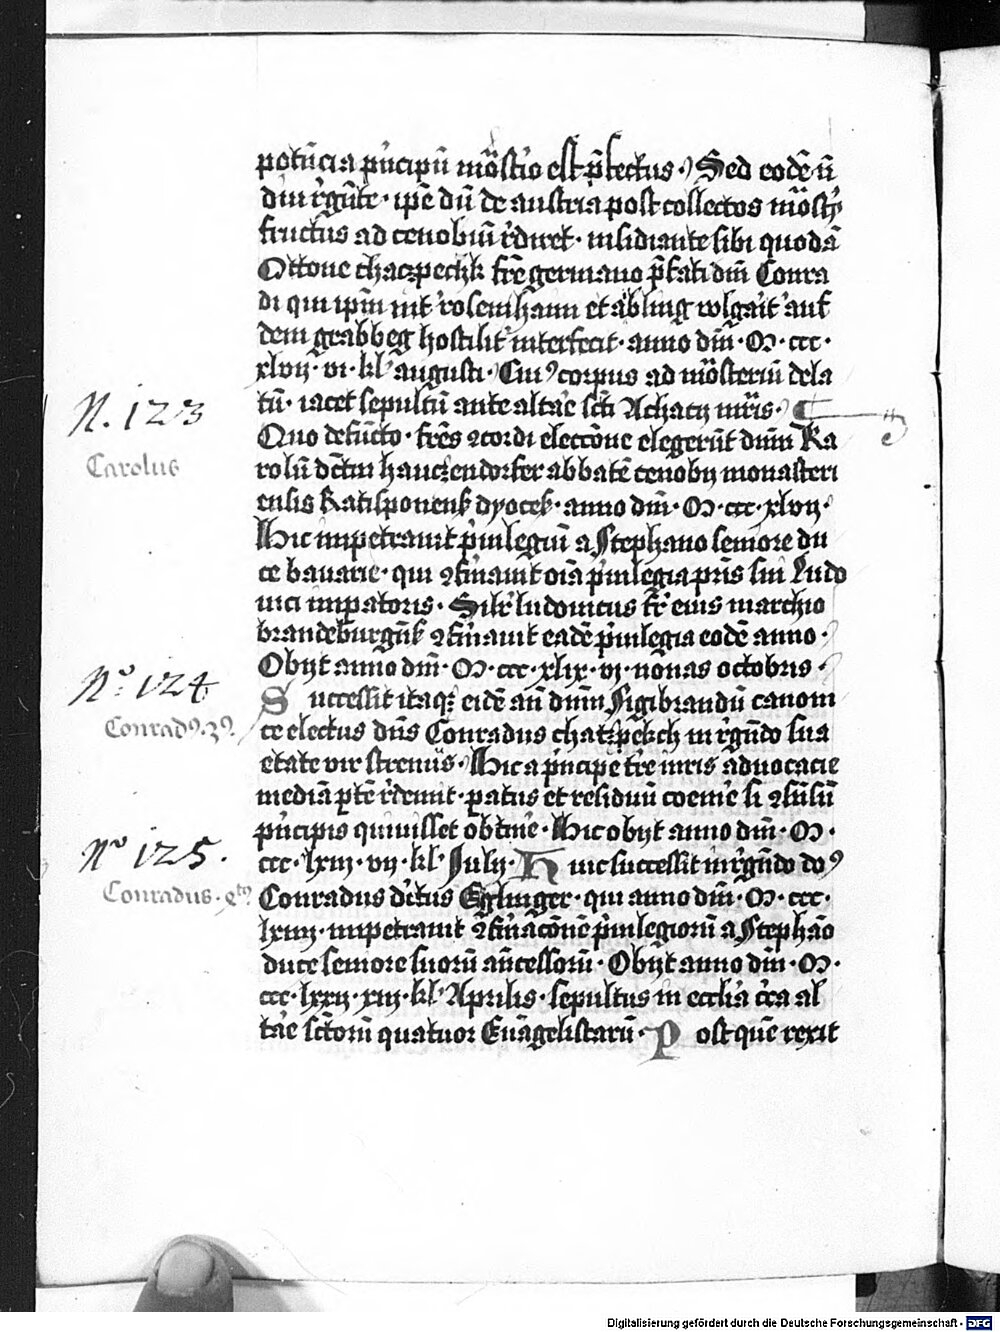 potēncia prīcipū mōst'io est p̄fectus · Sed eodē ū
diu r̄gnāte · ipē dū de austria post collectos mōst'ij
fructus ad cenobiū r̄diret · insidiante sibi quodā
Ottone chaczpeckh fr̄e germano p̄fati dm̄ Conra
di qui ip̄m int' rosenhaim et äbling wlgarit' auf
dem grabbeg hostilit' interfecit · anno dm̄ · M · ccc ·
xlvij · vi · kl' augusti · Cui9 corpus ad mōsteriū dela
tū · iacet sepultū ante altare sc̄ti Achacij mr̄is ·
Quo defūcto · fr̄es 9cordi elecc̄one elegerūt dnm̄ Ka
rolū dc̄tm hauczendorfer abbatē cenobij monasteri
ensis Ratisponens̄ dyoces̄ · anno dm̄ · M · ccc · xlvij ·
Hic impetrauit p'uilegiū a Stephano seniore du
ce bauarie · qui 9firmauit oīa p'uilegia pr̄is sui Ludo
uici imp̄atoris · Silr' ludouicus fr̄ eius marchio
brandeburgēn̄ 9firmauit eadē p'uilegia eodē anno ·
Obijt anno dm̄ · M · ccc · xlix · vj · nōnas octobris ·
Successit itaq3 eidē an̄ dnm̄ Sigibrandū canoni
ce electus dn̄s Conradus chatzpekch in r̄gn̄do sua
etate vir strenuus · Hic a p'ncipe tr̄e iuris aduocacie
mediā p̄tē r̄demit · paratus et residuū coeme' si 9sēsū
p'ncipis quiuisset obtine' · Hic obijt anno dm̄ · M ·
ccc · lxiij · vij · kl' Julij · Huic successit in r̄gn̄do do9
Conradus dc̄tus Eglinger · qui anno dm̄ · M · ccc ·
lxiiij · impetrauit 9firmac̄onē p'uilegiorū a Stephāo
duce seniore suorū an̄cessorū · Obijt anno dm̄ · M ·
ccc · lxxij · xiij · kl' Aprilis · sepultus in eccl'ia c'ca al
tāe sc̄torū quatuor Euāgelistarū · Post quē rexit
N. 123
Carolus
No. 124
Conrad9 · 39
No 125.
Conradus · 4t9
Digitalisierung gefördert durch die Deutsche Forschungsgemeinschaft - DFG